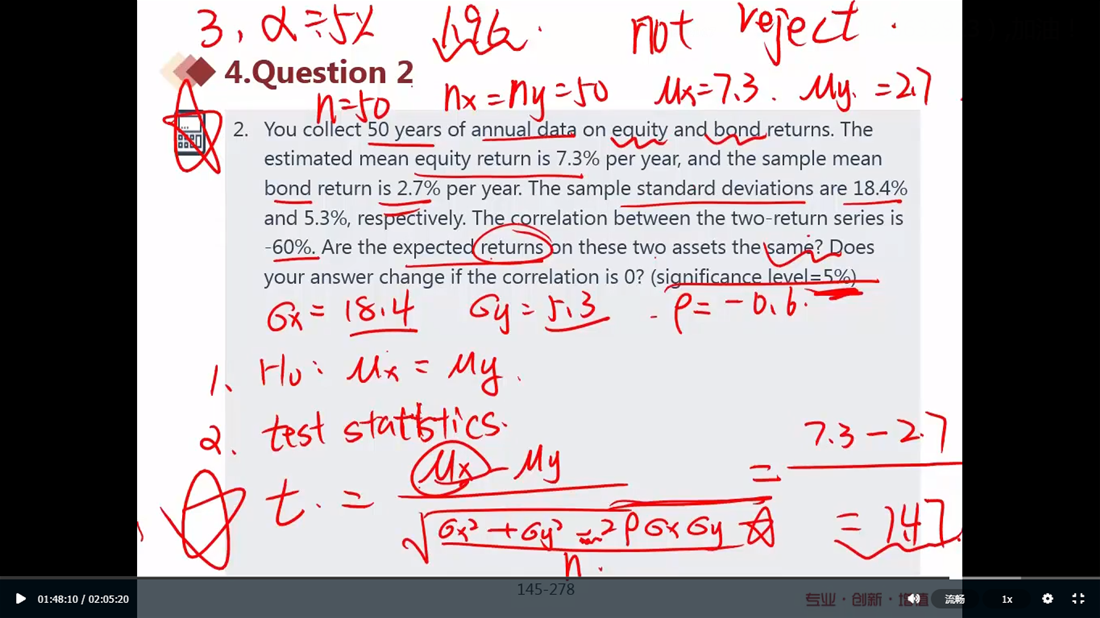 3, α=5% 1.96. not reject.
4.Question 2
n=50 nx = ny = 50 μx=7.3. μy. =2.7
2. You collect 50 years of annual data on equity and bond returns. The
estimated mean equity return is 7.3% per year, and the sample mean
bond return is 2.7% per year. The sample standard deviations are 18.4%
and 5.3%, respectively. The correlation between the two-return series is
-60%. Are the expected returns on these two assets the same? Does
your answer change if the correlation is 0? (significance level=5%)
σx = 18.4 σy = 5.3 ρ= -0.6.
1. Ho: μx = μy.
2. test statistics.
7.3-2.7
μx - μy =
t. =
√ σx² + σy² - 2ρσxσy = 1.47
n.
145-278
专业·创新·增值
01:48:10 / 02:05:20 流畅 1x